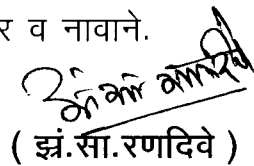 र व नावाने.
( झं.सा.रणदिवे )